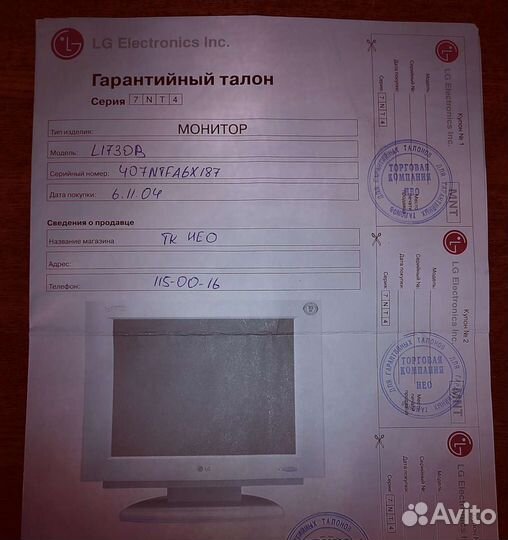 LG Electronics Inc.
Гарантийный талон
Серия 7 N T 4
Тип изделия: МОНИТОР
Модель: L1730B
Серийный номер: 407NTFA6X187
Дата покупки: 6.11.04
Сведения о продавце
Название магазина ТК НЕО
Адрес:
Телефон: 115-00-16
LG
Купон № 1
LG Electronics Inc.
Модель:
Серийный №:
Дата покупки:
Серия 7 N T 4
MNT
ДЛЯ ГАРАНТИЙНЫХ ТАЛОНОВ
ТОРГОВАЯ
КОМПАНИЯ
НЕО
Купон № 2
LG Electronics Inc.
Модель:
Серийный №:
Дата покупки:
Серия 7 N T 4
MNT
ДЛЯ ГАРАНТИЙНЫХ ТАЛОНОВ
ТОРГОВАЯ
КОМПАНИЯ
НЕО
LG Electronics
Модель:
Серийный №:
Дата покупки:
Серия 7 N T 4
Avito